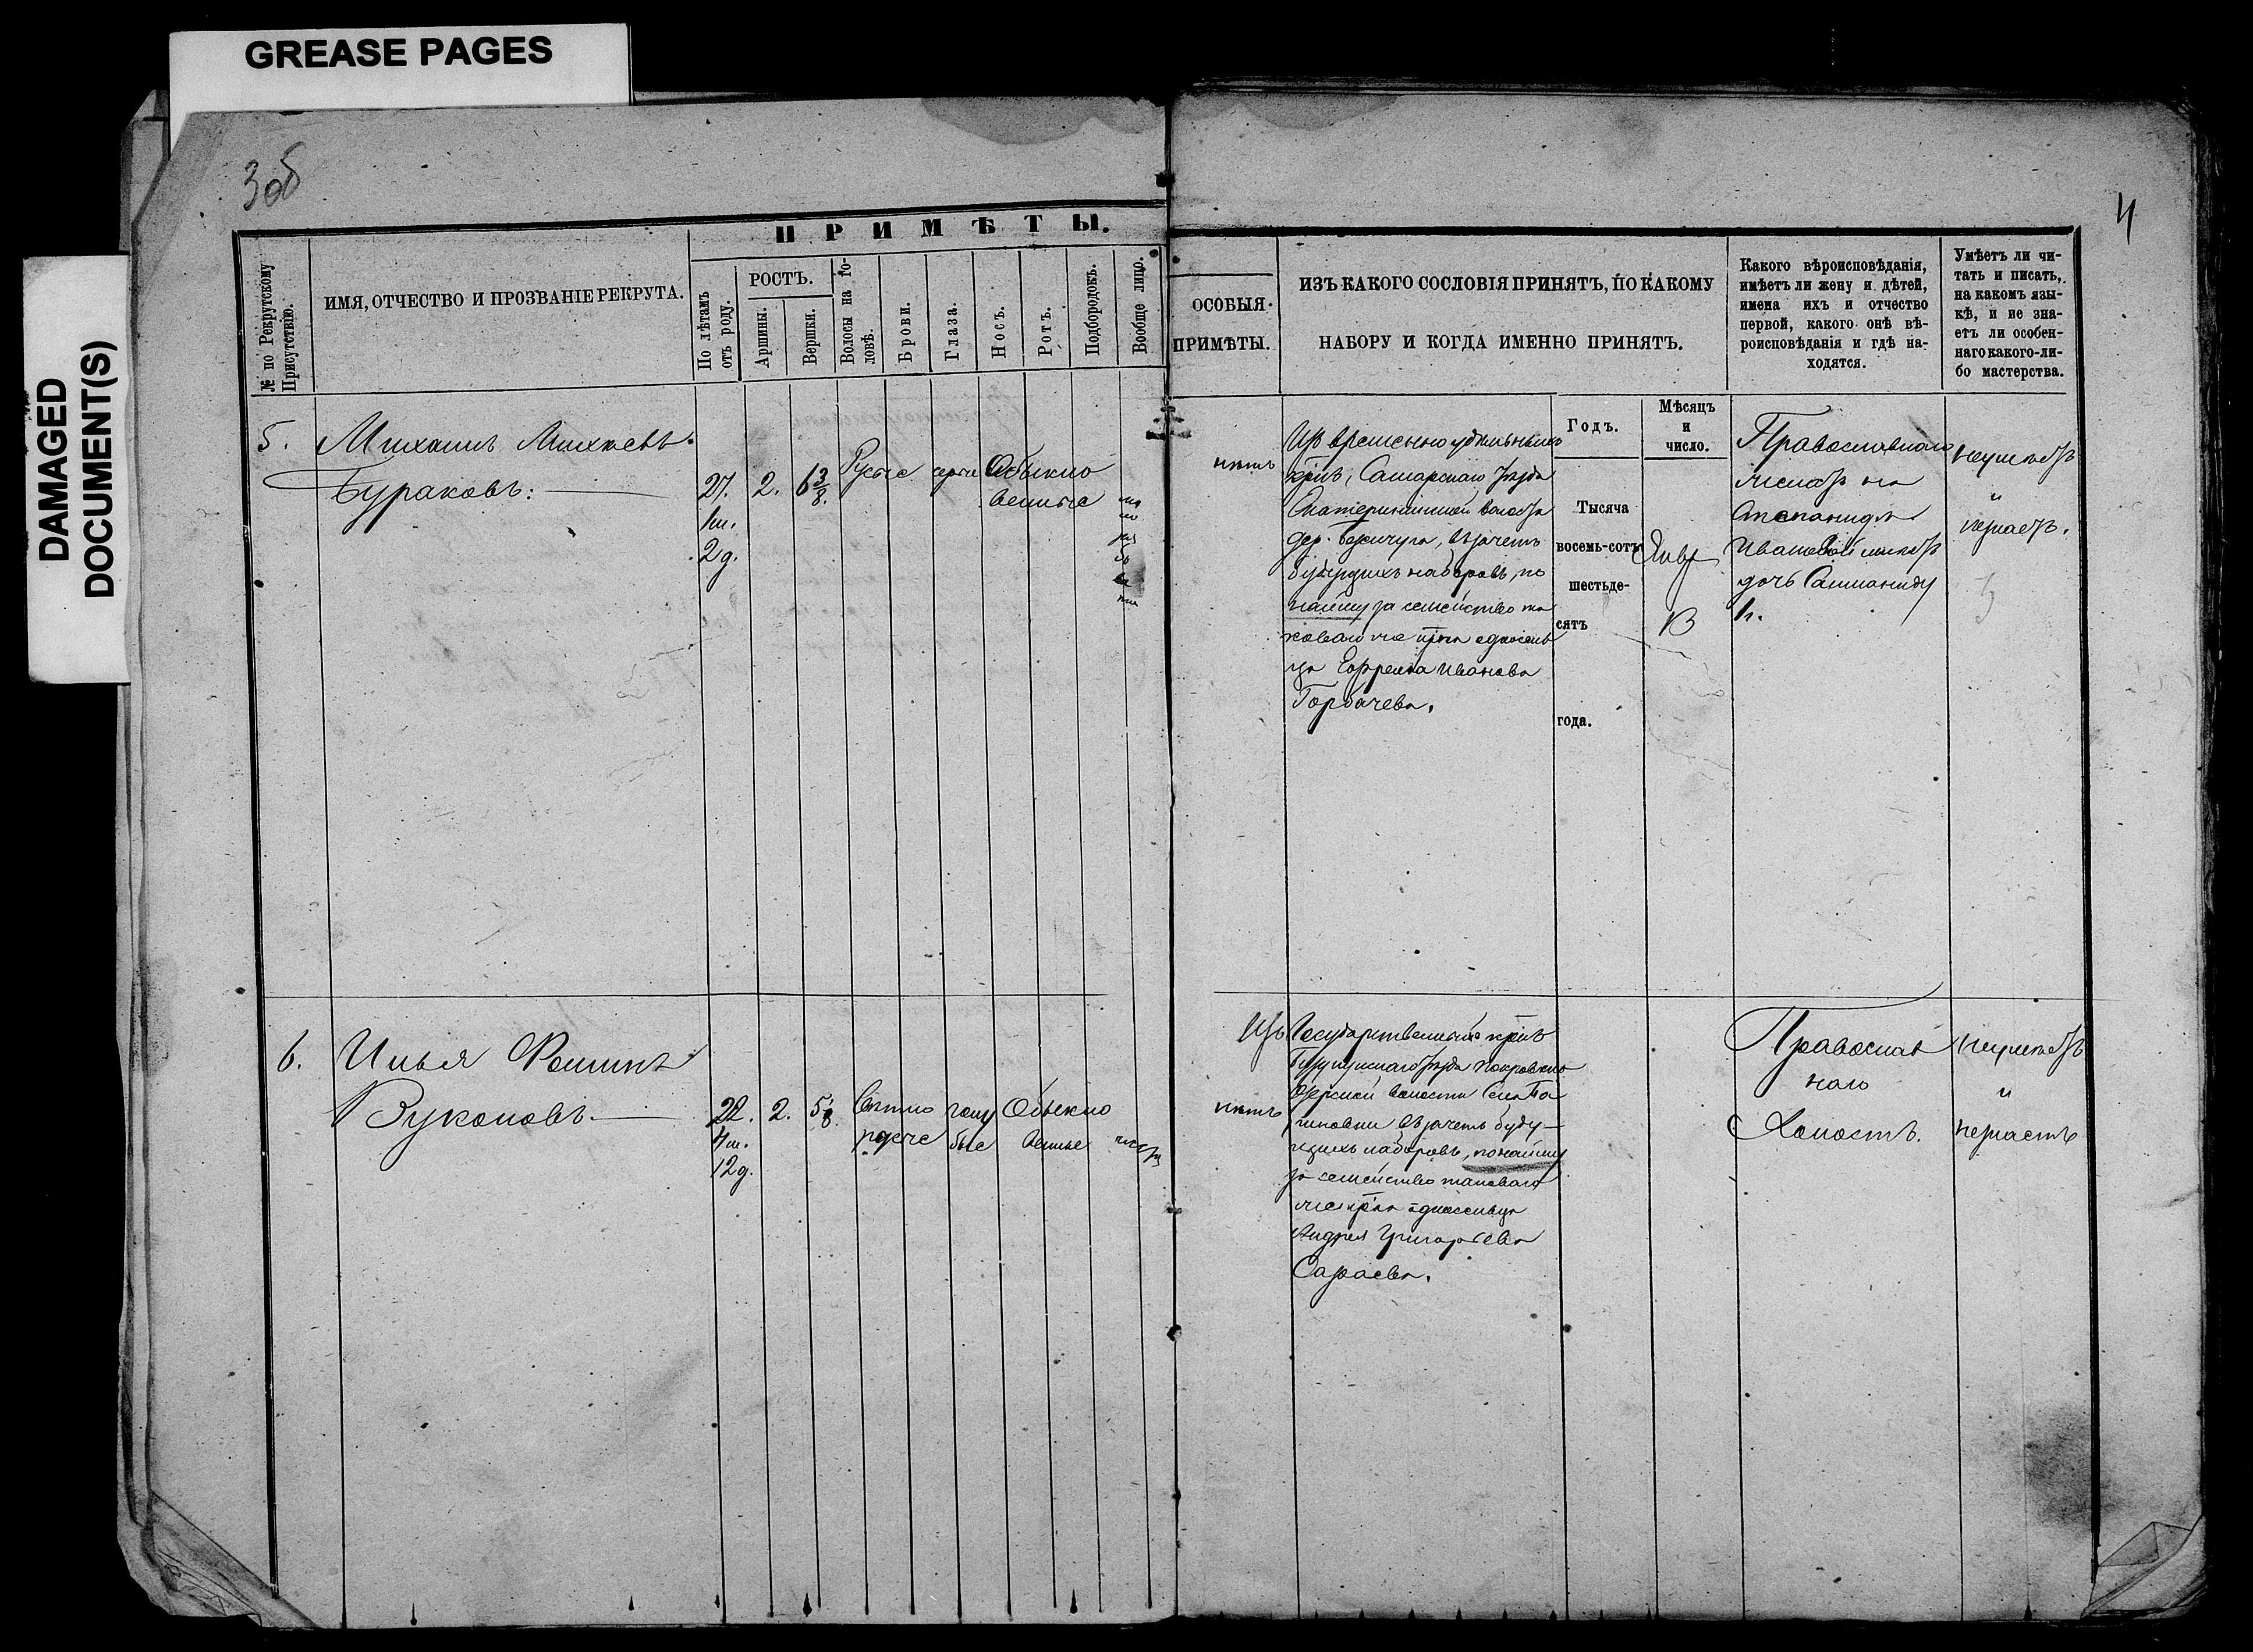 GREASE PAGES
DAMAGED
DOCUMENT(S)
3об
4
ПРИМѢТЫ.
№ по Рекрутскому
Присутствію.
ИМЯ, ОТЧЕСТВО И ПРОЗВАНІЕ РЕКРУТА.
По лѣтамъ
отъ роду.
РОСТЪ.
Аршины.
Вершки.
Волосы на го-
ловѣ.
Брови.
Глаза.
Носъ.
Ротъ.
Подбородокъ.
Вообще лицо.
ОСОБЫЯ
ПРИМѢТЫ.
ИЗЪ КАКОГО СОСЛОВІЯ ПРИНЯТЪ, ПО КАКОМУ
НАБОРУ И КОГДА ИМЕННО ПРИНЯТЪ.
Какого вѣроисповѣданія,
имѣетъ ли жену и дѣтей,
имена ихъ и отчество
первой, какого онѣ вѣ-
роисповѣданія и гдѣ на-
ходятся.
Умѣетъ ли чи-
тать и писать,
на какомъ язы-
кѣ, и не зна-
етъ ли особен-
наго какого-ли-
бо мастерства.
5.
Михаилъ Михѣевъ
Бураковъ:
27.
1м.
2д.
2.
6 3/8.
Русые
серые
Обыкно
венные
нѣтъ
Из временно удѣльныхъ
крнъ, Самарскаго уѣзда
Екатерининской волости
дер. Безенчука, въ зачетъ
будущихъ наборовъ, по
найму за семейство та
коваго же крна односель
ца Ефрема Иванова
Горбачева.
Годъ.
Тысяча
восемь-сотъ
шестьде-
сятъ
года.
Мѣсяцъ
и
число.
Янвр
13
Православнаго
женатъ на
Степанидѣ
Ивановой имѣетъ
дочь Степаниду
неумѣетъ
и
незнаетъ.
6.
Илья Фоминъ
Зуконовъ
22.
4м.
12д.
2.
5 1/8.
Свѣтло
русые
голу
бые
Обыкно
венные
чистое
нѣтъ
Изъ Государственныхъ крнъ
Бузулукскаго уѣзда Покровско
въ зачетъ буду-
щихъ наборовъ, по найму
за семейство таковаго
же крна односельца
Андрея Григорьева
Сараева.
Православ
наго
Холостъ.
неумѣетъ
и
незнаетъ